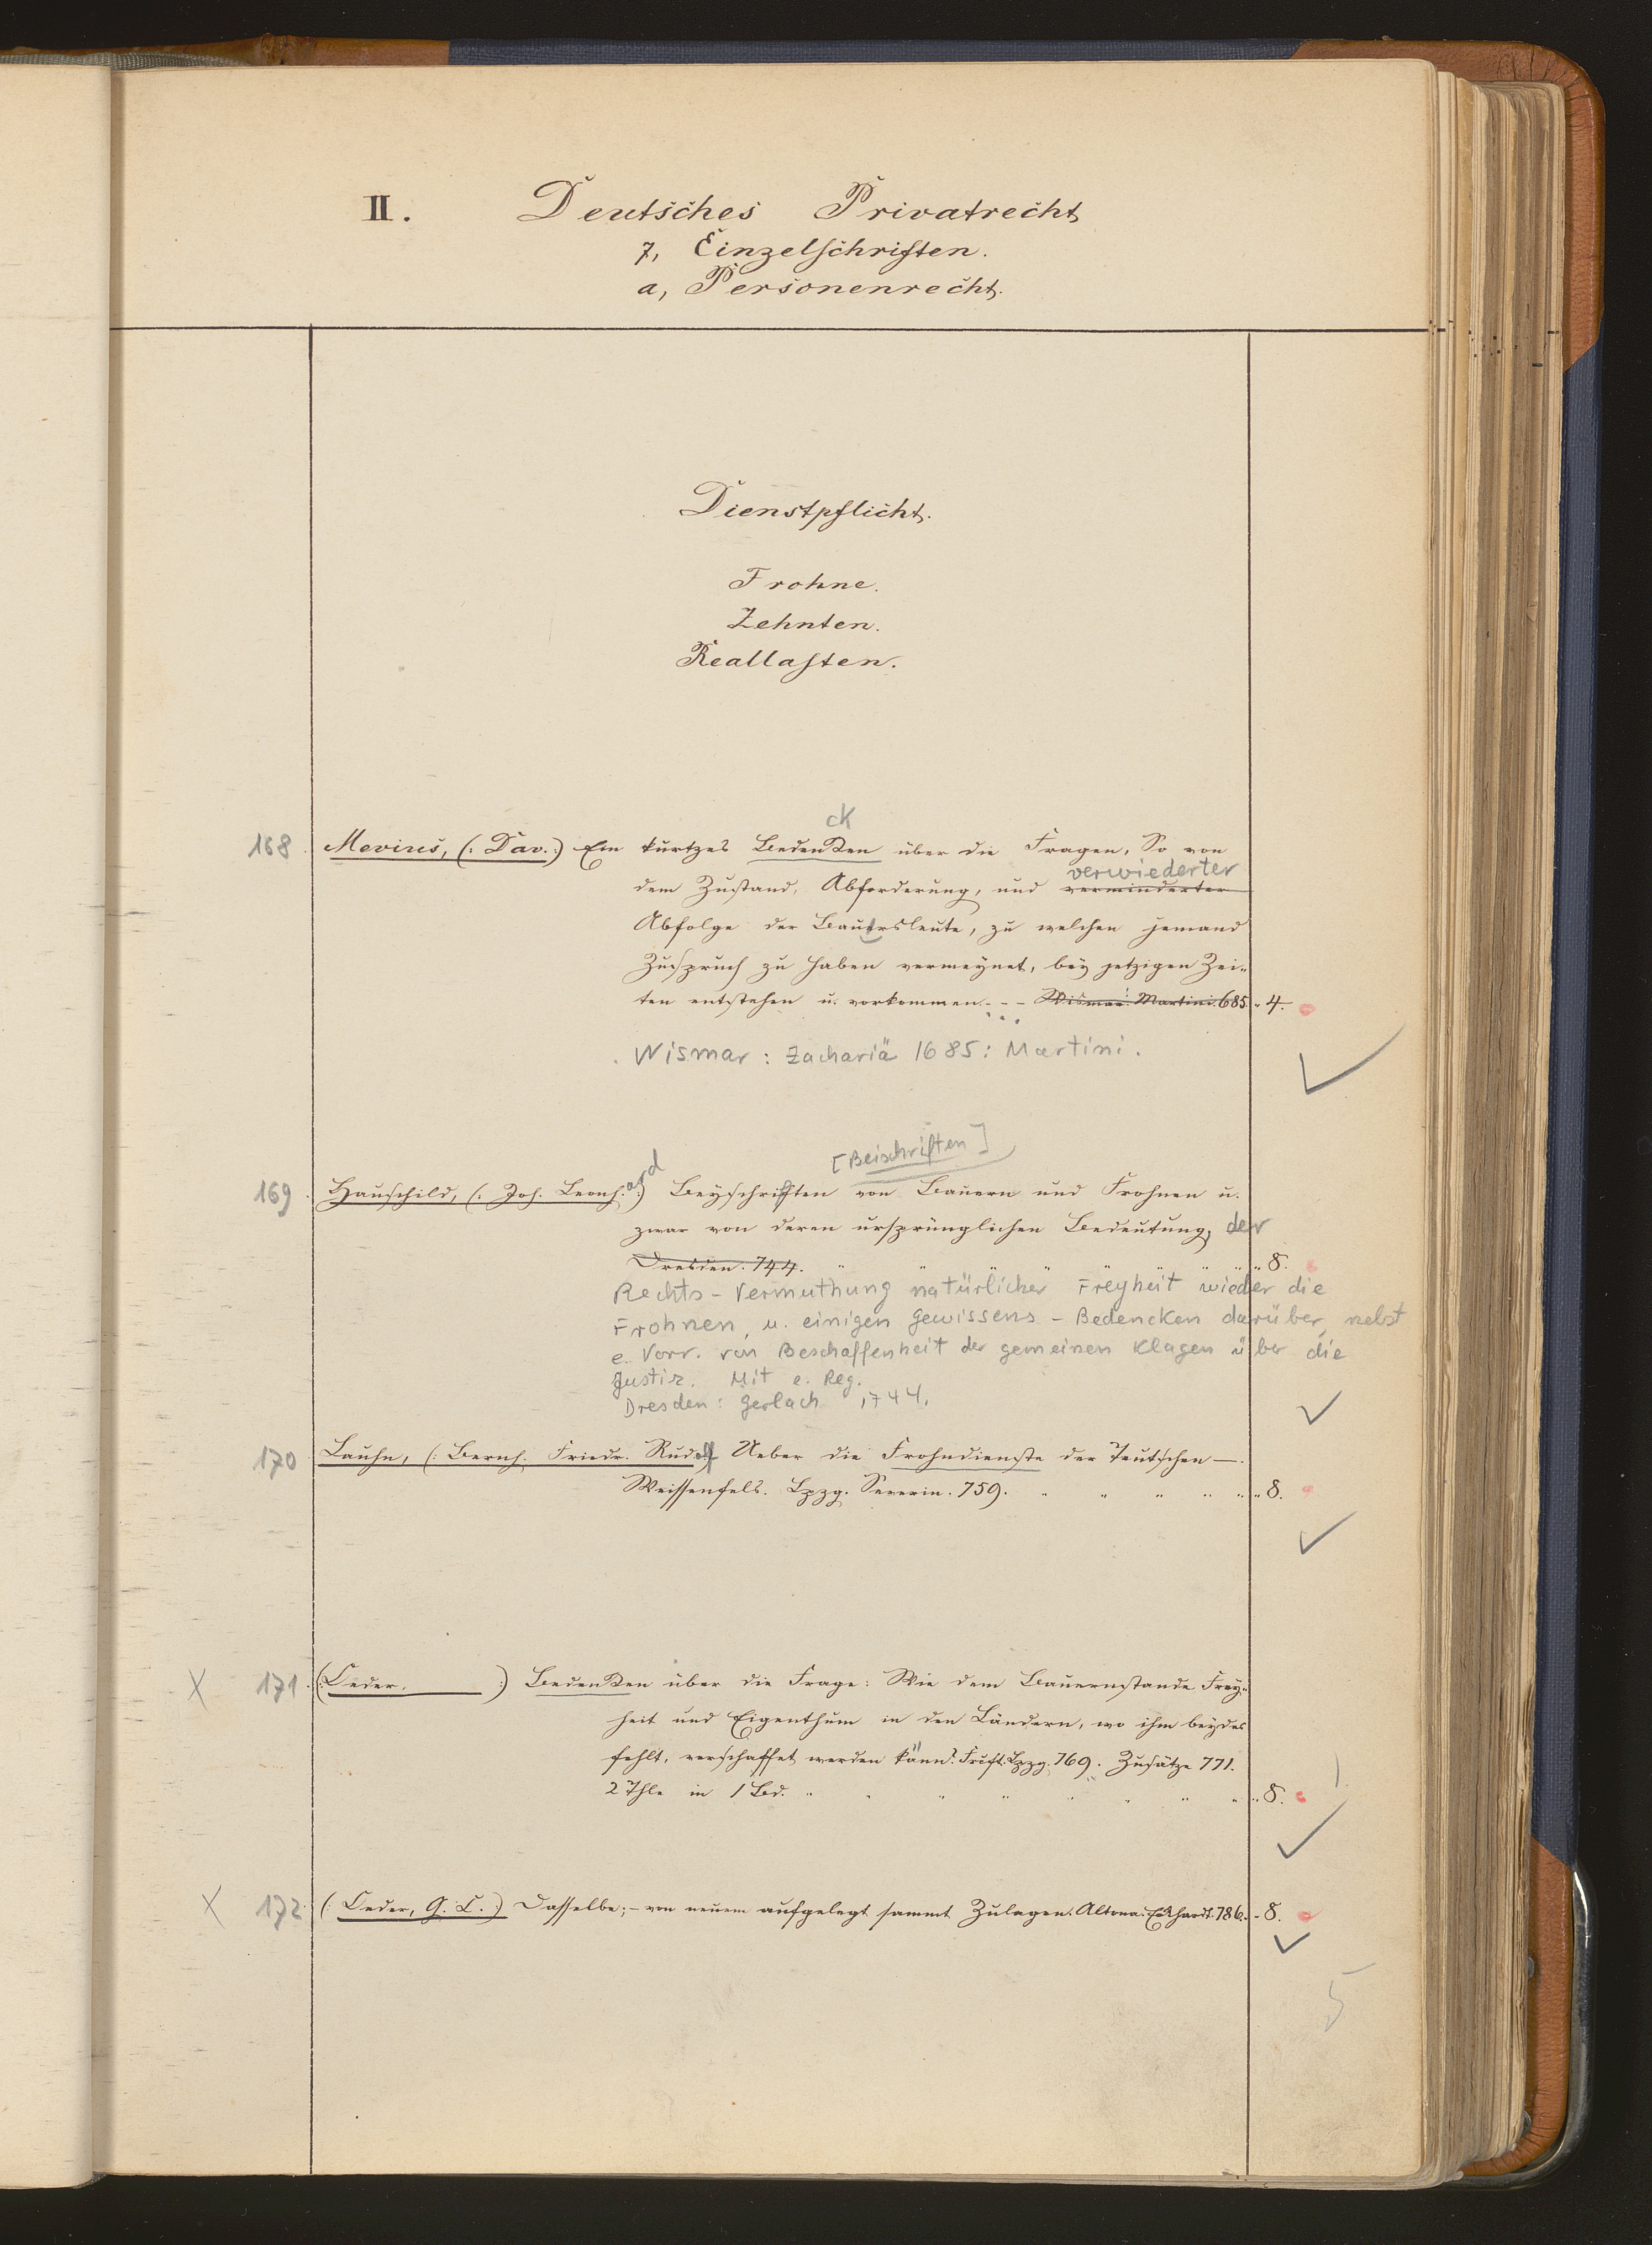 II. Deutsches Privatrecht
7, Einzelschriften.
a, Personenrecht.
Dienstpflicht.
Frohne.
Zehnten.
Reallasten.
ck
168 Mevius, (: Dav. :) Ein kurtzes Bedenken über die Fragen, So von
verwiederter
dem Zustand, Abforderung, und verminderter
Abfolge der Bauersleute, zu welchen jemand
Zuspruch zu haben vermeynet, bey jetzigen Zei-
ten entstehen u. vorkommen. - - Wismar. Martini. 685. " 4.
Wismar : Zachariä 1685 : Martini.
[Beischriften]
169 Hauschild, (: Joh. Leonhard :) Beyschriften von Bauern und Frohnen u.
zwar von deren ursprünglichen Bedeutung, der
Dresden. 744. " " " " " " " 8.
Rechts-Vermuthung natürlicher Freyheit wieder die
Frohnen, u. einigen Gewissens-Bedencken darüber, nebst
e. Vorr. von Beschaffenheit der gemeinen Klagen über die
Justiz. Mit e. Reg.
Dresden : Gerlach 1744.
170 Lauhn, (: Bernh. Friedr. Rudolf Ueber die Frohndienste der Teutschen —.
Weissenfels. Lpzg. Severin. 759. " " " " " " 8.
X 171 (: Oeder. :) Bedenken über die Frage: Wie dem Bauernstande Frey-
heit und Eigenthum in den Ländern, wo ihm beydes
fehlt, verschaffet werden könn? Frcft. Lpzg. 769. Zusätze 771.
2 Thle in 1 Bd. " " " " " " " " " 8.
X 172 (: Oeder, G. C. :) Dasselbe; - von neuem aufgelegt sammt Zulagen. Altona. Eckhardt. 786. - 8.
5